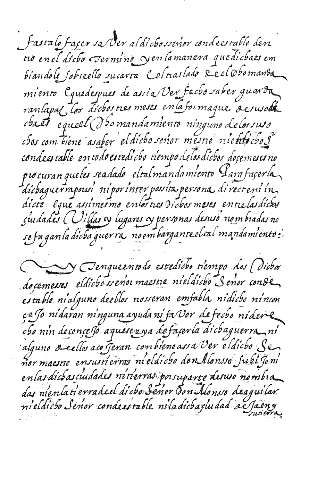 fasta lo façer saver al dicho señor condestable den
tro en el dicho termino y en la manera que dicha es em
biandole sobre ello su carta con el traslado de el dho manda
miento e que despues de assi aver fecho saber guarda
ran la paz los dichos tres meses en la forma que de suso
dicha es e que el dho mandamiento ninguno de los suso
dichos combiene a saber el dicho señor mestre ni el dicho S
condestable en todo este dicho tiempo de los dichos doçe meses no
procuran que les sea dado el tal mandamiento para façer la
dicha guerra por si ni por interposita persona directe ni in
directe e que assimesmo en los tres dichos meses entre las dichas
çiudades Villas y lugares y personas de suso nombradas no
se faga la dicha guerra no embargante el tal mandamiento:
Y Ten que en todo este dicho tiempo dos dichos
doçe meses el dicho señor maestre ni el dicho Señor conde
estable ni alguno de ellos no seran en fabla ni dicho ni con
çejo ni daran ninguna ayuda ni favor de fecho ni de dere
cho nin de consejo a que se aya de façer la dicha guerra ni
alguno de ellos a confiren combiene a saver el dicho Se
ñor maestre en sus tierras ni el dicho don Alonsso su fijo ni
en las dichas çiudades ni tierras por su parte de suso nombra
das ni en la tierra de el dicho Señor Don Alonso de aguilar
ni el dicho Señor condestable ni la dicha çiudad de Jaen y
su tierra